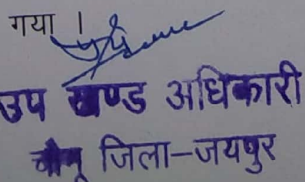 गया ।
उप खण्ड अधिकारी
चौमू जिला-जयपुर